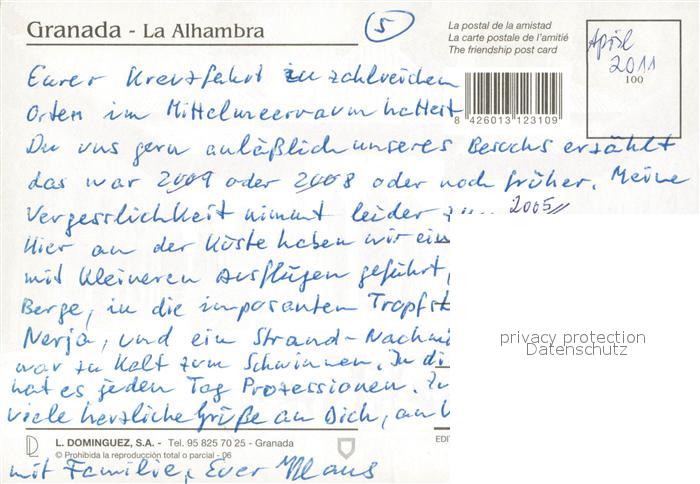 Granada - La Alhambra
5
La postal de la amistad
La carte postale de l'amitié
The friendship post card
April
2011
100
8 426013 123109
Eurer Kreuzfahrt zu zahlreichen
Orten im Mittelmeerraum hattest
Du uns gern anläßlich unseres Besuchs erzählt
das war 2009 oder 2008 oder noch früher. Meine
Vergesslichkeit nimmt leider zu 2005
Hier an der Küste haben wir ein
mit kleineren Ausflügen geführt,
Berge, in die imposanten Tropfst
Nerja, und ein Strand-Nachmi
war zu kalt zum Schwimmen. In di
hat es jeden Tag Prozessionen.
viele herzliche Grüße an Dich, an
mit Familie, Euer Klaus
privacy protection
Datenschutz
L. DOMINGUEZ, S.A. - Tel. 95 825 70 25 - Granada
© Prohibida la reproducción total o parcial - 06
EDI